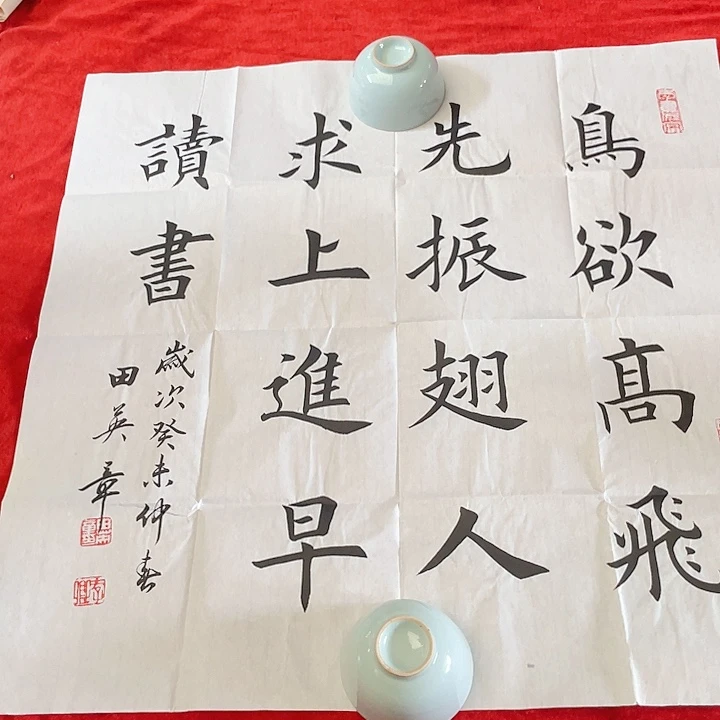 鳥欲高飛
先振翅人
求上進早
讀書
歲次癸未仲春
田英章